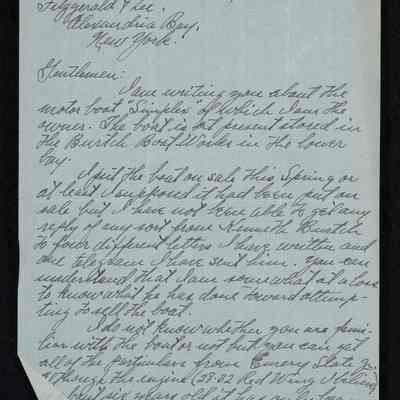 Fitzgerald & Lee.
Alexandria Bay,
New York.
Gentlemen:
I am writing you about the
motor boat "Simplex" of which I am the
owner. The boat is at present stored in
the Burtch Boat Works in the lower
bay.
I put the boat on sale this Spring or
at least I supposed it had been put on
sale but I have not been able to get any
reply of any sort from Kenneth Burtch
to four different letters I have written and
one telegram I have sent him. You can
understand that I am somewhat at a loss
to know what he has done toward attemp-
ting to sell the boat.
I do not know whether you are fami-
liar with the boat or not but you can get
all of the particulars from Emery Slate
although the engine (28-32 Red Wing
but six years old it has only